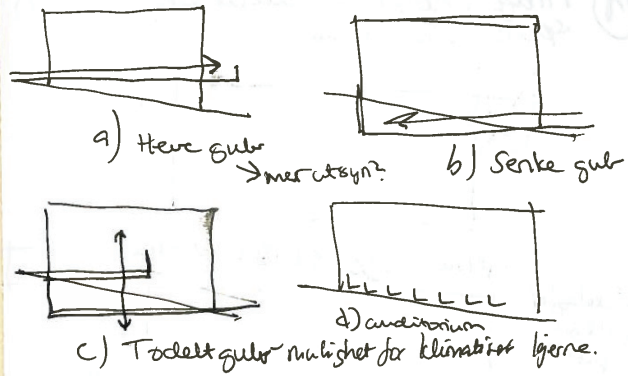 a) Heve gulv
→ mer utsyn?
b) Senke gulv
d) auditorium
c) Todelt gulv - mulighet for klimatisert kjerne.